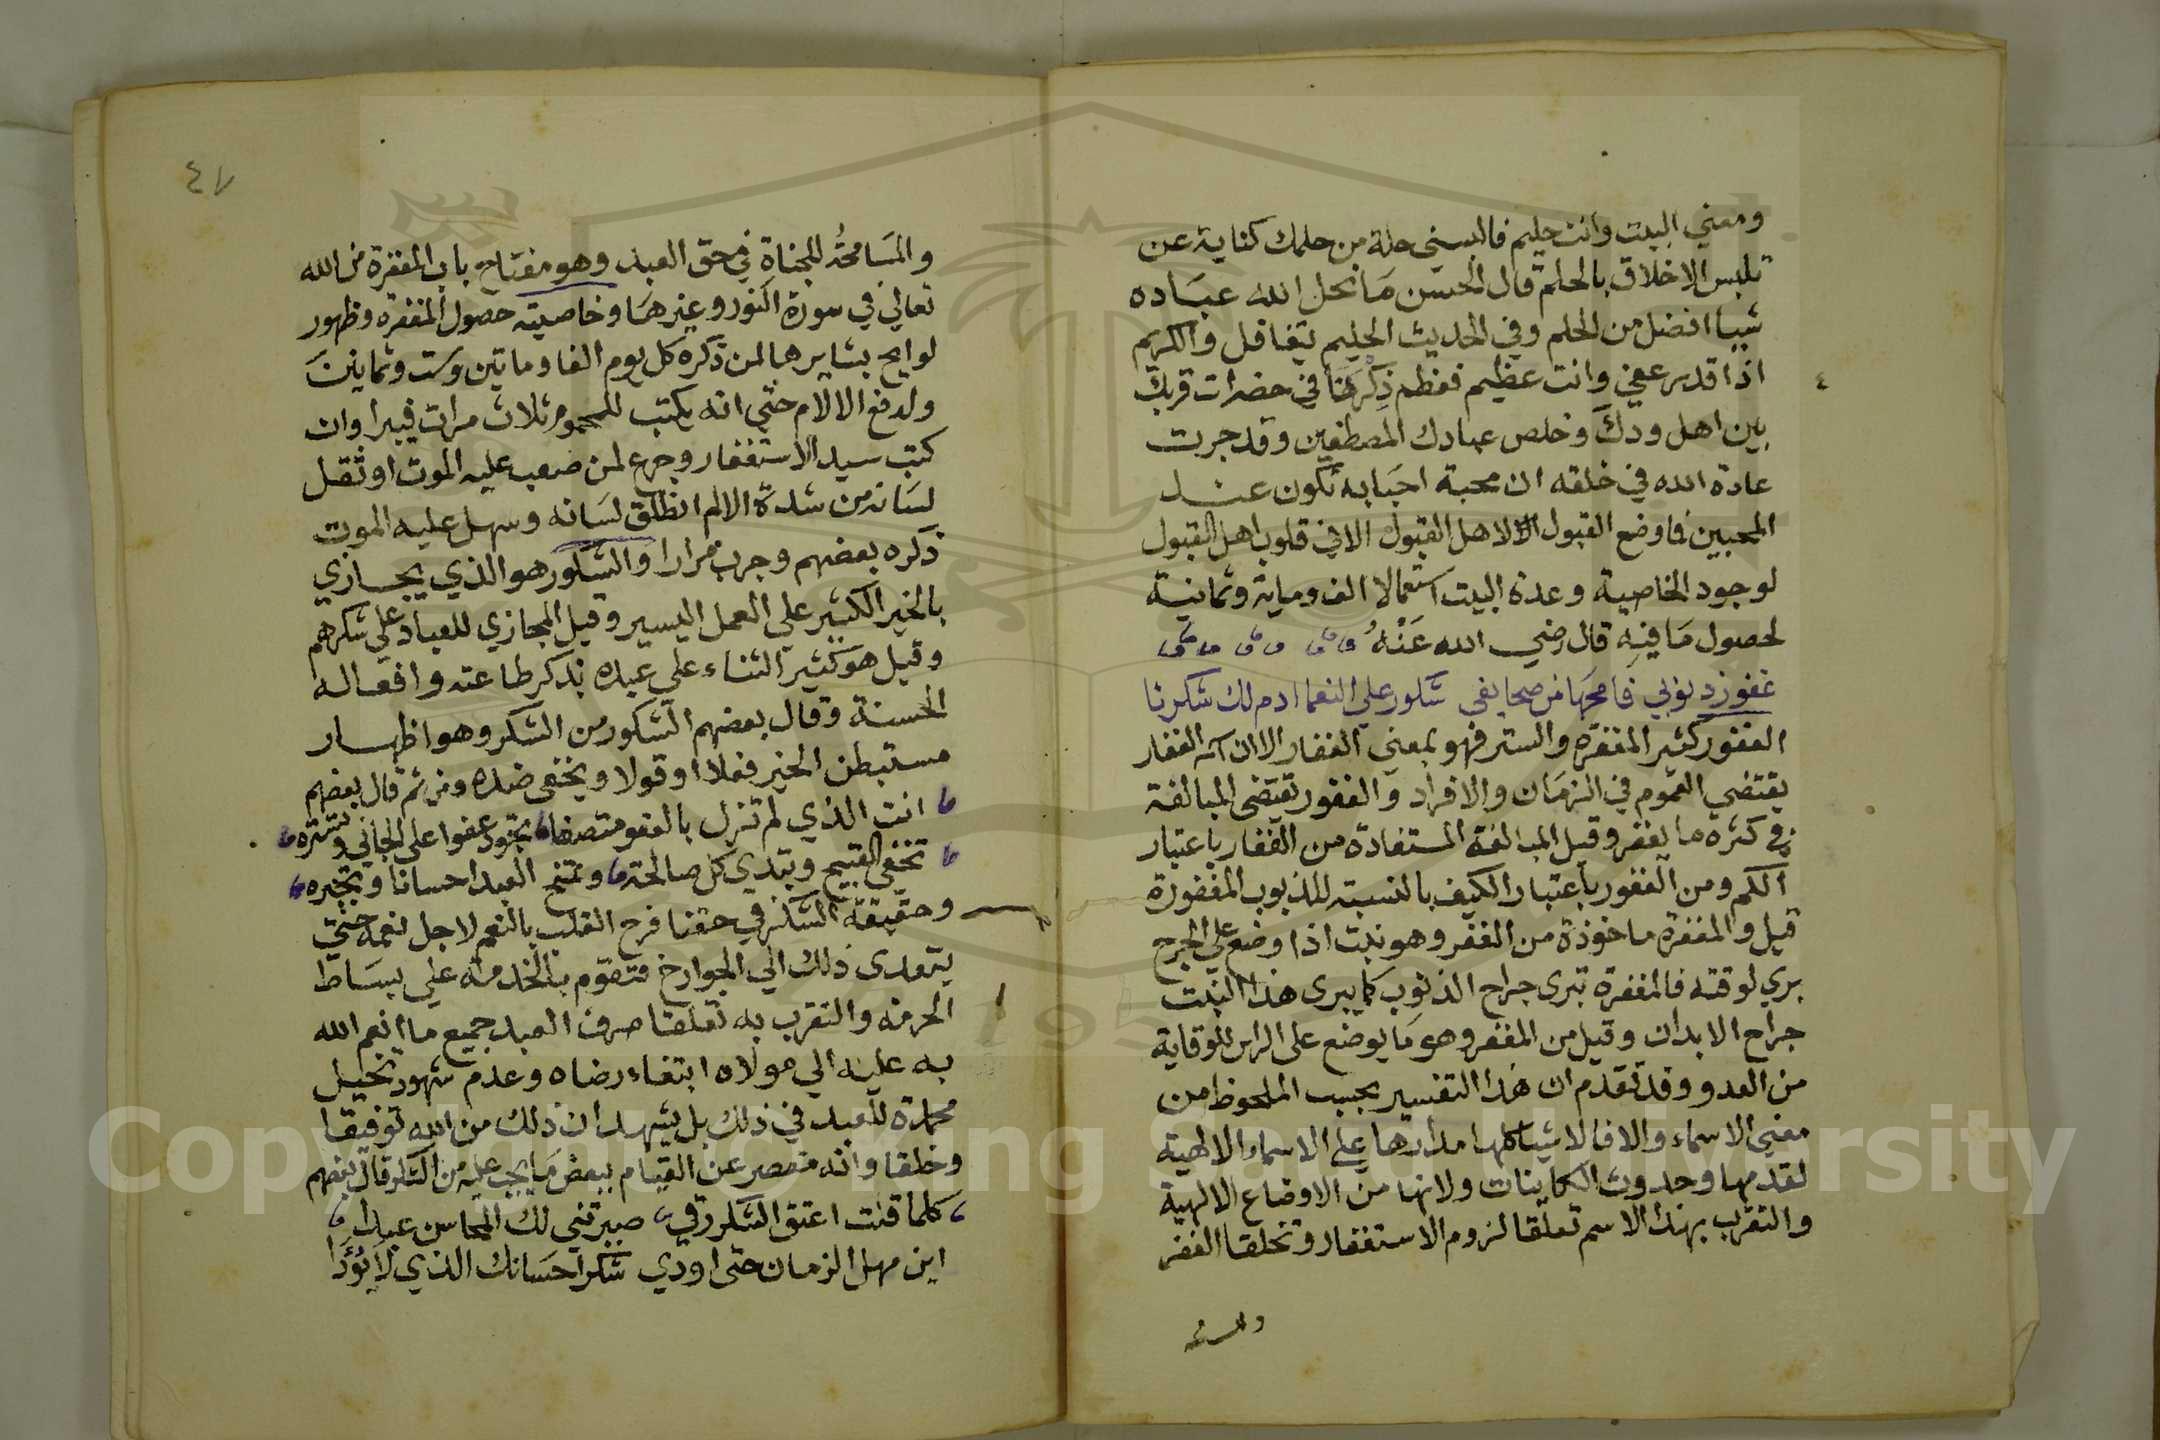 ومعني البيت وانت حليم فالبسني حلة من حلمك كناية عن
تلبس الاخلاق بالحلم قال الحسن ما نحل الله عباده
شيا افضل من الحلم وفي الحديث الحليم يتغافل والكريم
اذا قدر عفي وانت عظيم فعظم ذكرنا في حضرات قربك
بين اهل ودك وخلص عبادك المصطفين وقد جرت
عادة الله في خلقه ان محبة احبابه تكون عند
المحبين فما وضع القبول لاهل القبول الا في قلوب اهل القبول
لوجود الخاصية وعدة البيت استعمالا الف وماية وثمانية
لحصول ما فيه قال رضي الله عنه
غفور ذنوبي فامحها من صحايفي شكور علي النعما ادم لك شكرنا
الغفور كثير المغفرة والستر فهو بمعني الغفار الا ان اسم الغفار
يقتضي العموم في الزمان والافراد والغفور تقتضي المبالغة
في كثرة ما يغفر وقيل المبالغة المستفادة من الغفار باعتبار
الكم ومن الغفور باعتبار الكيف بالنسبة للذنوب المغفورة
قيل والمغفرة ماخوذة من الغفر وهو نبت اذا وضع علي الجرح
بري لوقته فالمغفرة تبري جراح الذنوب كما يبري هذا النبت
جراح الابدان وقيل من المغفر وهو ما يوضع علي الراس للوقاية
من العدو وقد تقدم ان هذا التفسير بحسب الملحوظ من
معني الاسماء والا فالاشيا كلها مدارها علي الاسماء الالهية
لقدمها وحدوث الكاينات ولانها من الاوضاع الالهية
والتقرب بهذا الاسم تعلقا لزوم الاستغفار وتخلقا الغفر
٤٧
والمسامحة للجناة في حق العبد وهو مفتاح باب المغفرة من الله
تعالي في سورة النور وغيرها وخاصيته حصول المغفرة وظهور
لوايح بشايرها لمن ذكره كل يوم الفا وماتين وست وثمانين
ولدفع الالام حتي انه يكتب للمحموم ثلاث مرات فيبرا وان
كتب سيد الاستغفار وجرع لمن صعب عليه الموت او ثقل
لسانه من شدة الالم انطلق لسانه وسهل عليه الموت
ذكره بعضهم وجرب مرارا والشكور هو الذي يجازي
بالخير الكثير علي العمل اليسير وقيل المجازي للعباد علي شكرهم
وقيل هو كثير الثناء علي عبده بذكر طاعته وافعاله
الحسنة وقال بعضهم الشكور من الشكر وهو اظهار
مستبطن الخير فعلا او قولا ويخفى ضده ومن ثم قال بعضهم
انت الذي لم تزل بالعفو متصفا تجود عفوا على الجاني وتستره
تخفى القبيح وتبدي كل صالحة وتمنح العبد احسانا وتجبره
وحقيقة الشكر في حقنا فرح القلب بالنعم لاجل نعمه حتي
يتعدى ذلك الي الجوارح فتقوم بالخدمة علي بساط
الحرمة والتقرب به تعلقا صرف العبد جميع ما انعم الله
به عليه الي مولاه ابتغاء رضاه وعدم شهود تخيل
محمدة للعبد في ذلك بل يشهد ان ذلك من الله توفيقا
وخلقا وانه مقصر عن القيام ببعض ما يجب عليه من الشكر قال بعضهم
كلما قلت اعتق الشكر رقي صيرتني لك المحاسن عبدا
اين مهل الزمان حتى اودي شكر احسانك الذي لا يؤدا